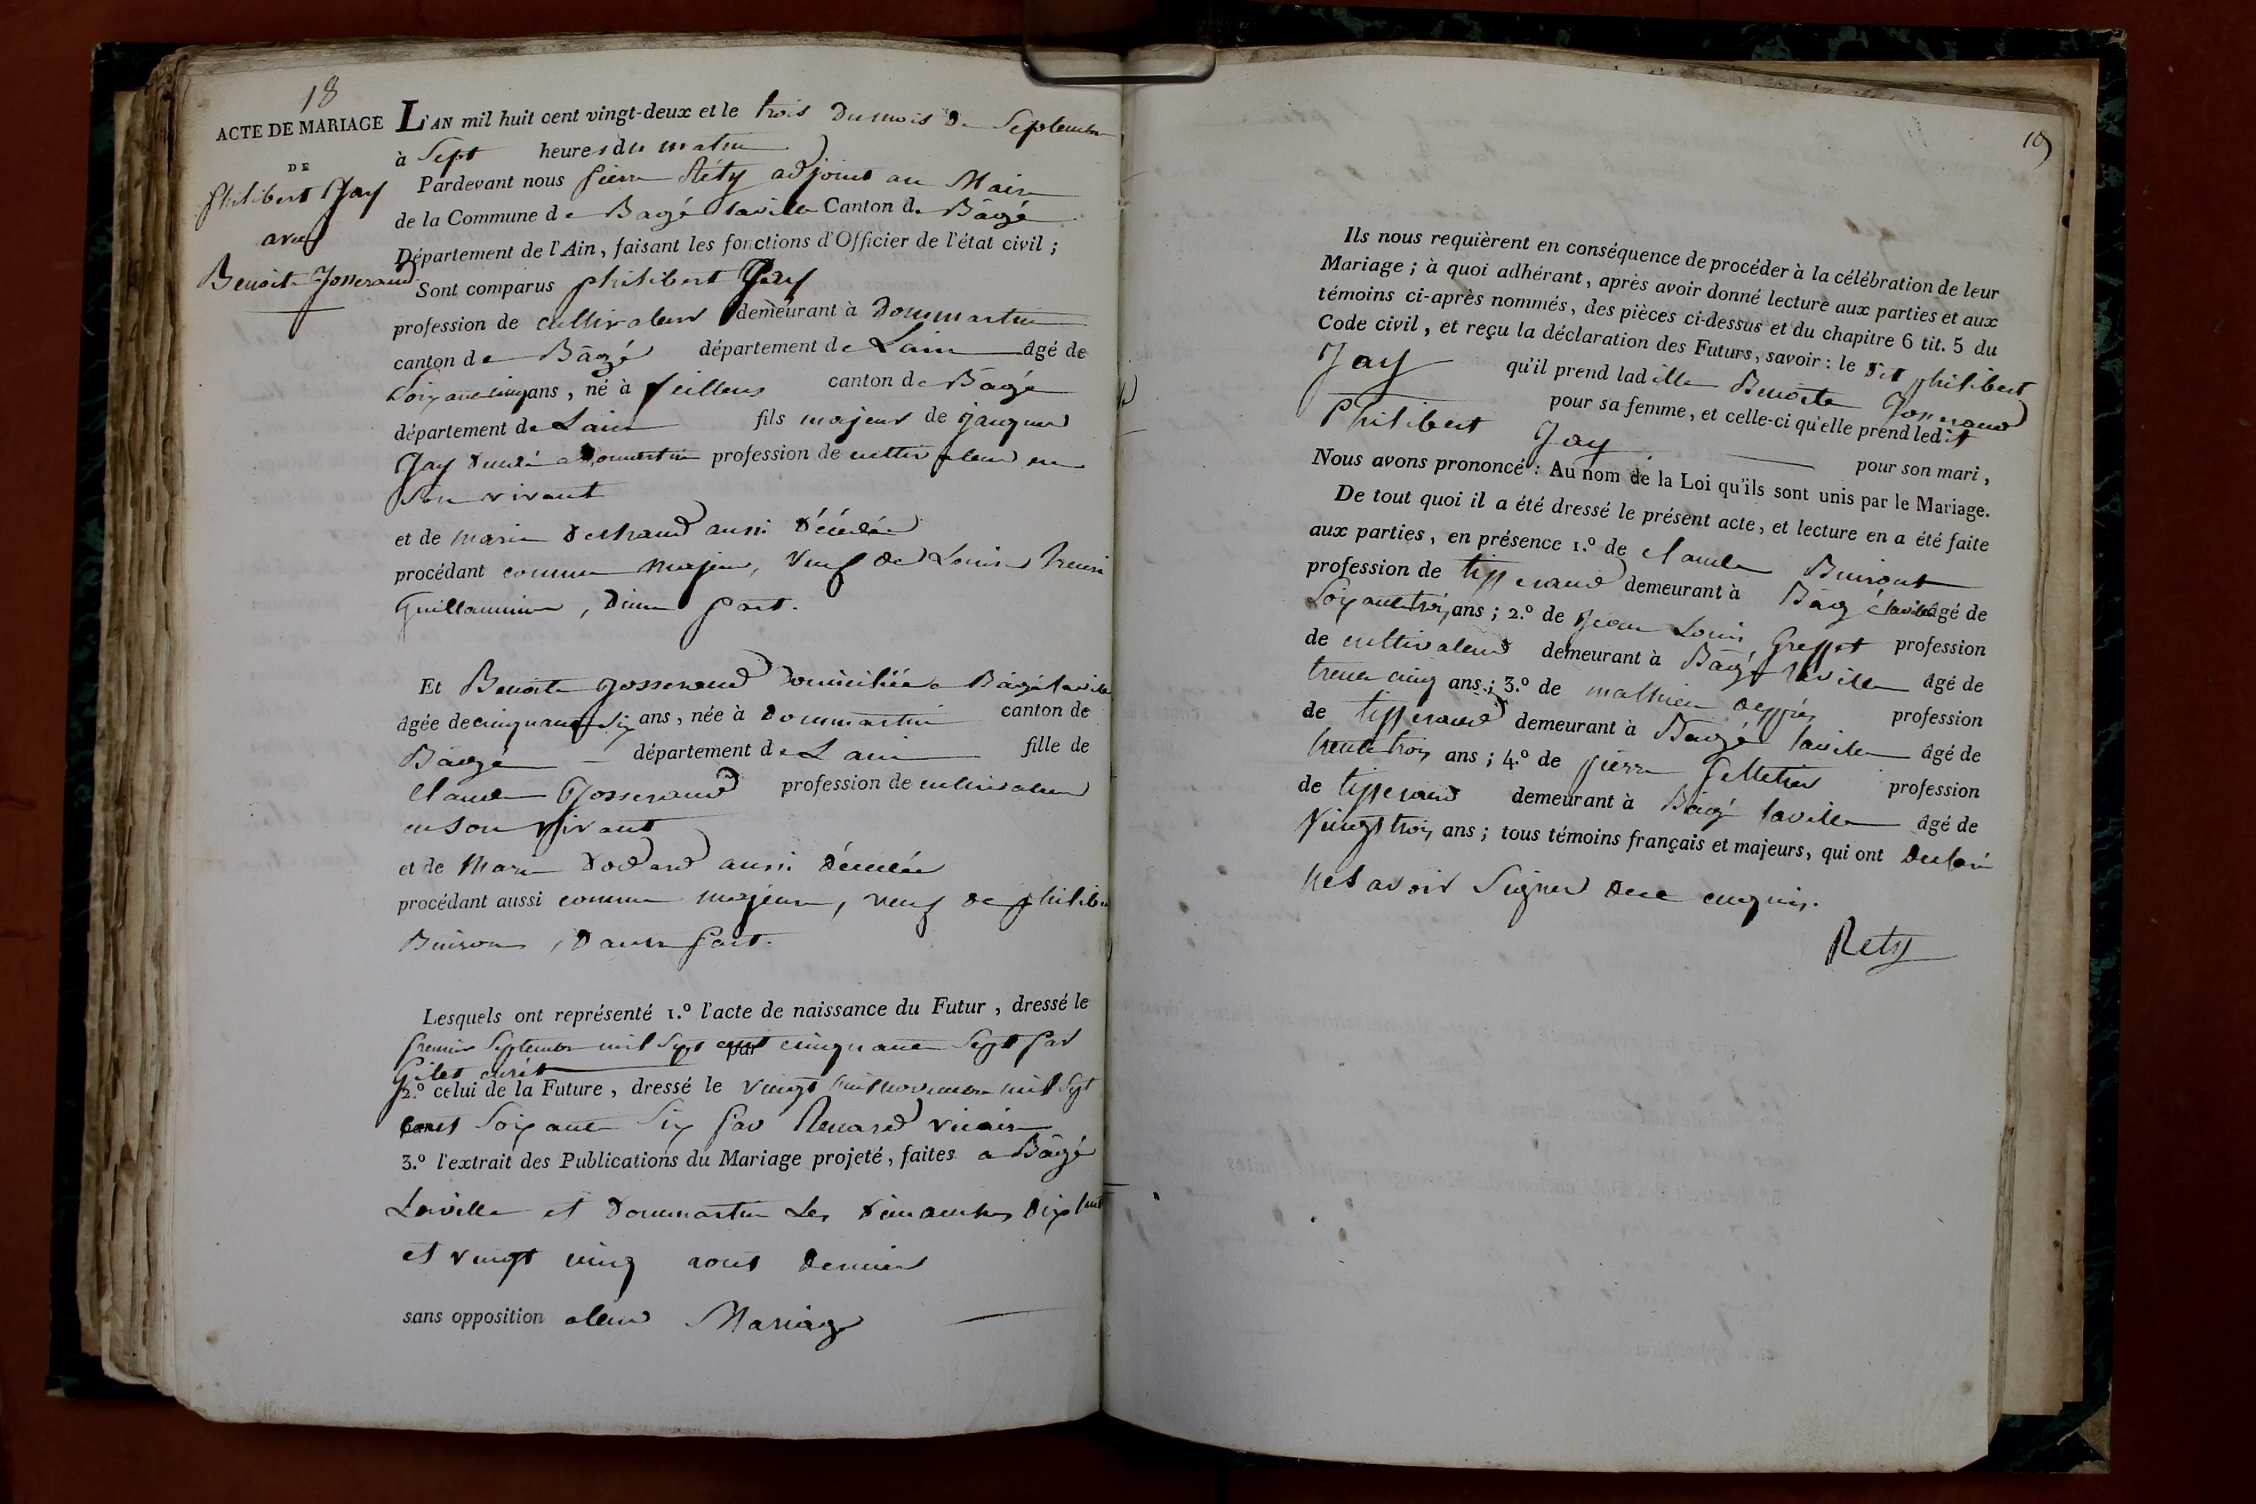 18
ACTE DE MARIAGE
DE
philibert Jay
avec
Benoite Josserand
L'AN mil huit cent vingt-deux et le trois du mois de Septembre
à Sept heures du matin
Pardevant nous pierre Réty adjoint au Maire
de la Commune de Bagé laville Canton de Bâgé
Département de l'Ain, faisant les fonctions d'Officier de l'état civil ;
Sont comparus philibert Jay
profession de cultivateur demeurant à Dommartin
canton de Bâgé département de Lain âgé de
Soixante cinq ans, né à feillens canton de Bâgé
département de Lain fils majeur de jacques
Jay décédé a Dommartin profession de cultivateur en
Son vivant
et de marie aussi décédée
procédant comme majeur, veuf de Louise
Guillaumine, Dune part.
Et Benoite Josserand Domiciliée a Bâgé laville
âgée de cinquante six ans, née à Dommartin canton de
Bâgé département de Lain fille de
Claude Josserand profession de cultivateur
en son vivant
et de Marie aussi décédée
procédant aussi comme majeure, veuf de philibert
Buiron, Dautre part.
Lesquels ont représenté 1.º l'acte de naissance du Futur, dressé le
premier Septembre mil Sept cent cinquante Sept par
curé
2.º celui de la Future, dressé le vingt huit novembre mil Sept
cent Soixante Six par Renard vicaire
3.º l'extrait des Publications du Mariage projeté, faites a Bâgé
Laville et Dommartin Les Dimanches Dix huit
et vingt cinq aout Dernier
sans opposition aleur Mariage
19
Ils nous requièrent en conséquence de procéder à la célébration de leur
Mariage ; à quoi adhérant, après avoir donné lecture aux parties et aux
témoins ci-après nommés, des pièces ci-dessus et du chapitre 6 tit. 5 du
Code civil, et reçu la déclaration des Futurs, savoir : le dit philibert
Jay qu'il prend ladille Benoite Josserand
pour sa femme, et celle-ci qu'elle prend ledit
Philibert Jay pour son mari,
Nous avons prononcé : Au nom de la Loi qu'ils sont unis par le Mariage.
De tout quoi il a été dressé le présent acte, et lecture en a été faite
aux parties, en présence 1.º de claude
profession de tisserand demeurant à Bâgé laville âgé de
Soixante trois ans ; 2.º de jean Louis Greffet profession
de cultivateur demeurant à Bâgé laville âgé de
trente cinq ans ; 3.º de mathieu profession
de tisserand demeurant à Baugé laville âgé de
trente trois ans ; 4.º de pierre pelletier profession
de tisserand demeurant à Bâgé laville âgé de
Vingt trois ans ; tous témoins français et majeurs, qui ont Declaré
ne Savoir Signer Dece enquis.
Rety